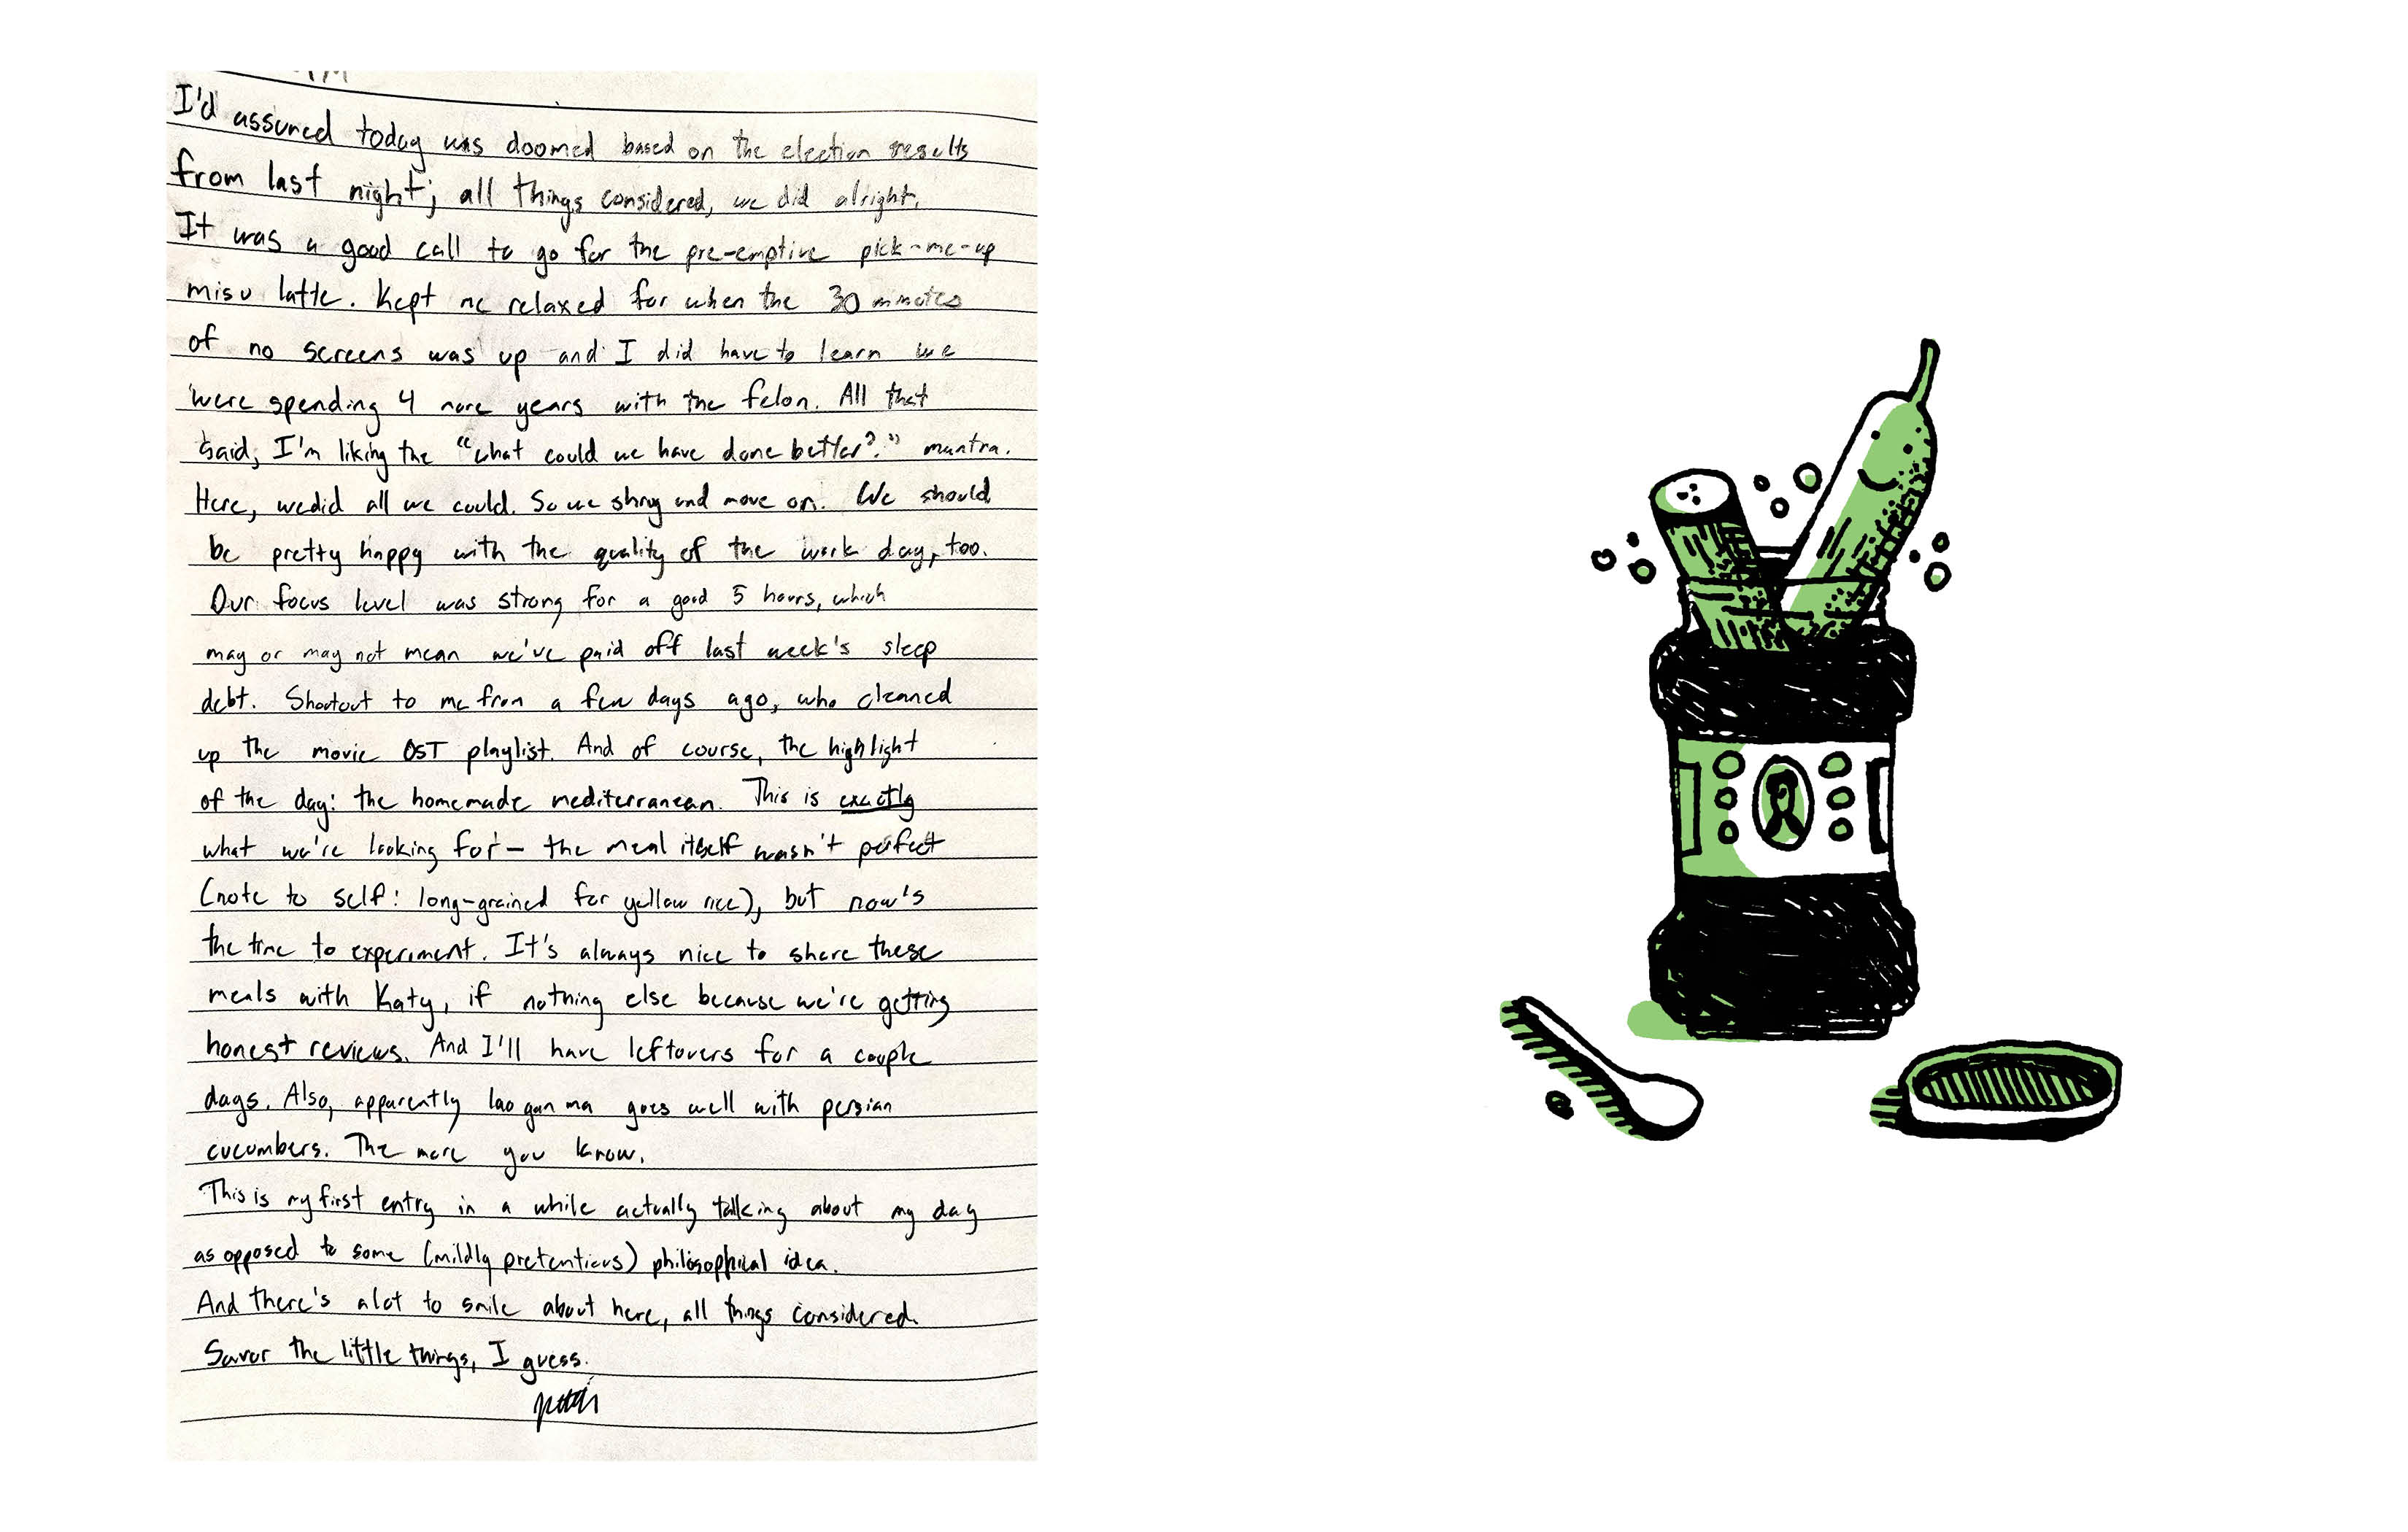 I'd assumed today was doomed based on the election results
from last night; all things considered, we did alright.
It was a good call to go for the pre-emptive pick-me-up
misu latte. Kept me relaxed for when the 30 minutes
of no screens was up and I did have to learn we
were spending 4 more years with the felon. All that
said, I'm liking the "what could we have done better?" mantra.
Here, we did all we could. So we shrug and move on. We should
be pretty happy with the quality of the work day, too.
Our focus level was strong for a good 5 hours, which
may or may not mean we've paid off last week's sleep
debt. Shoutout to me from a few days ago, who cleaned
up the movie OST playlist. And of course, the highlight
of the day: the homemade mediterranean. This is exactly
what we're looking for— the meal itself wasn't perfect
(note to self: long-grained for yellow rice), but now's
the time to experiment. It's always nice to share these
meals with Katy, if nothing else because we're getting
honest reviews. And I'll have leftovers for a couple
days. Also, apparently lao gan ma goes well with persian
cucumbers. The more you know.
This is my first entry in a while actually talking about my day
as opposed to some (mildly pretentious) philosophical idea.
And there's alot to smile about here, all things considered.
Savor the little things, I guess.